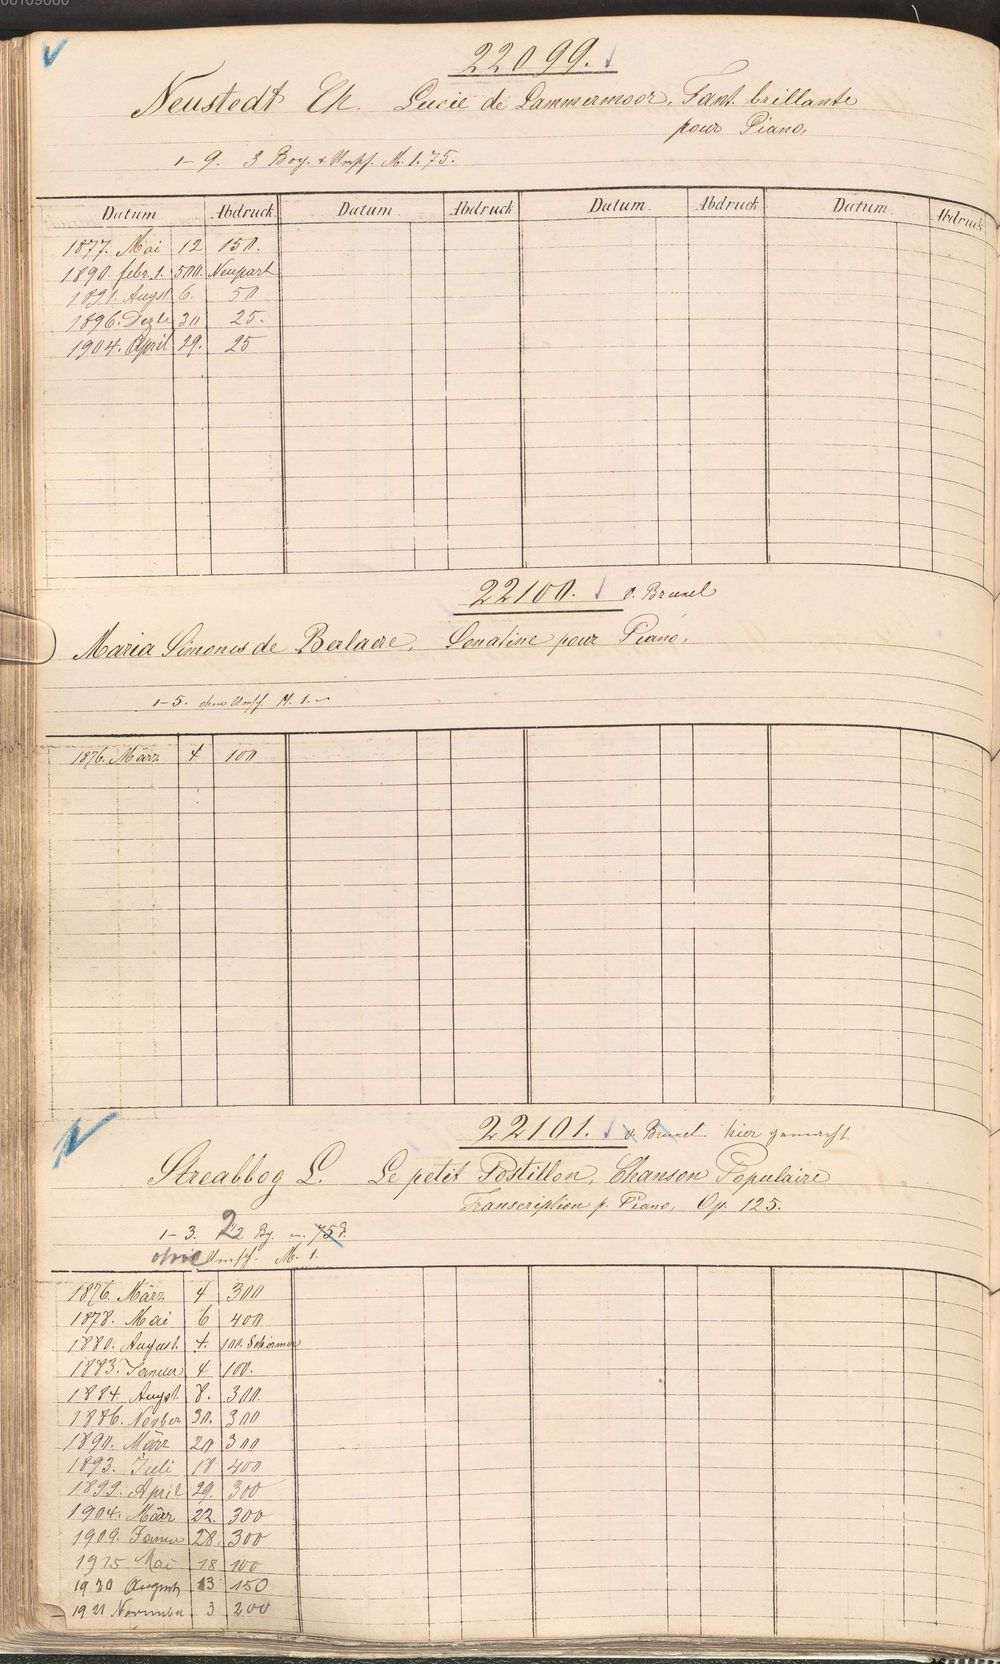 22099.
Neustedt Ch. Lucie de Lammermoor, Fant. brillante
pour Piano,
1-9. 3 Bog. + Umschl. M. 1.75.
Datum Abdruck Datum. Abdruck Datum. Abdruck Datum Abdruck
1877. Mai 12 150.
1890. febr. 1. 500. Neupart
1891. Augst 6. 50
1896. Dezbr 30 25.
1904. April 29. 25
22100. v. Brunel
Maria Simones de Berlaere, Sonatine pour Piano.
1-5. ohne Umschl. M. 1.-
1876. März 4 100
22101. v. Brunel hier gemacht
Streabbog L. Le petit Postillon, Chanson Populaire
Transcription p. Piano, Op. 125.
1-3. 2 Bg. 75
ohne Umschl. M. 1.
1876. März 4 300
1878. Mai 6 400
1880. August. 4. 100. Schirmer
1883. Januar 4 100.
1884. Augst. 8. 300.
1886. Novber 30. 300
1890. März 20 300
1893. Juli 18 400
1899. April 29. 300
1904. März 22. 300
1909. Januar 28. 300
1915 Mai 18 100
1920 August 13 150
1921 November 3 200